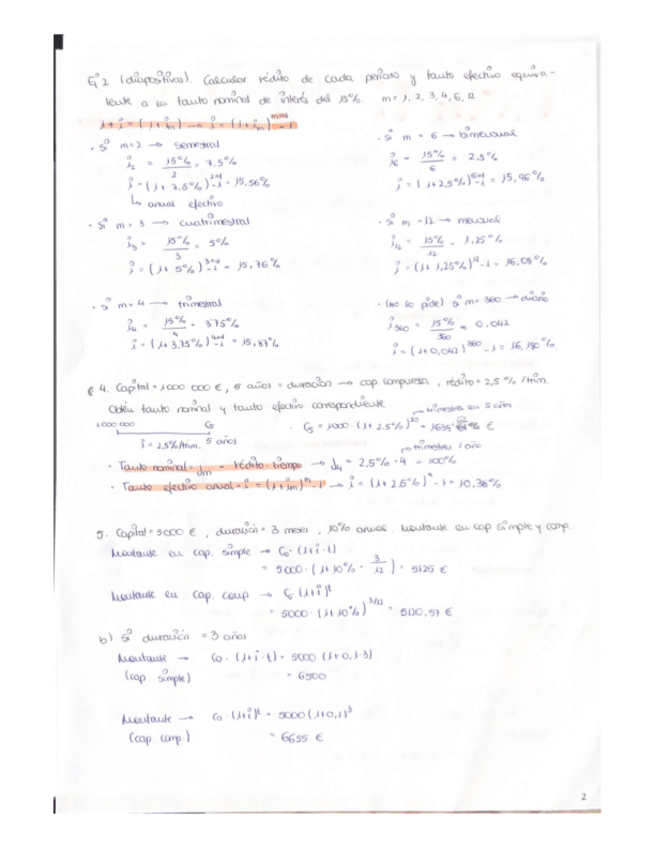 Ej 2 (diapositivas). Calcular rédito de cada periodo y tanto efectivo equiva-
lente a un tanto nominal de interés del 15%. m = 1, 2, 3, 4, 6, 12
1+i = (1+im)^m → i = (1+im)^m - 1
· Si m=2 → semestral
i2 = 15%/2 = 7,5%
i = (1+ 7,5%)^2 -1 = 15,56%
↳ anual efectivo
· Si m = 3 → cuatrimestral
i3 = 15%/3 = 5%
i = (1+ 5%)^3 -1 = 15,76%
· Si m = 4 → trimestral
i4 = 15%/4 = 3'75%
i = (1+ 3,75%)^4 -1 = 15,87%
· Si m = 6 → bimensual
i6 = 15%/6 = 2,5%
i = (1+2,5%)^6 -1 = 15,96%
· Si m = 12 → mensual
i12 = 15%/12 = 1,25%
i = (1+ 1,25%)^12 -1 = 16,08%
· (no lo pide) Si m = 360 → diario
i360 = 15%/360 = 0,042
i = (1+0,042)^360 - 1 = 16,180%
4. Capital = 1000 000 €, 5 años = duración → cap. compuesta, rédito = 2,5% /trim.
Obtén tanto nominal y tanto efectivo correspondiente.
1000 000 C5
i = 2,5% /trim. 5 años
trimestres en 5 años
C5 = 1000 · (1+ 2.5%)^20 = €
trimestres 1 año
· Tanto nominal = jm = rédito · tiempo → J4 = 2,5% · 4 = 100%
· Tanto efectivo anual = i = (1+im)^n -1 → i = (1+ 2.5%)^4 -1 = 10,38%
5. Capital = 5000 €, duración = 3 meses, 10% anual. Montante en cap simple y comp.
Montante en cap. simple → C0 · (1+i · t)
= 5000 · (1+10% · 3/12) = 5125 €
Montante en cap. comp → C0 · (1+i)^t
= 5000 · (1+10%)^3/12 = 5120,57 €
b) Si duración = 3 años
Montante → C0 · (1+i · t) = 5000 (1+0,1·3)
(cap. simple) = 6500
Montante → C0 · (1+i)^t = 5000 (1+0,1)^3
(cap. comp.) = 6655 €
2